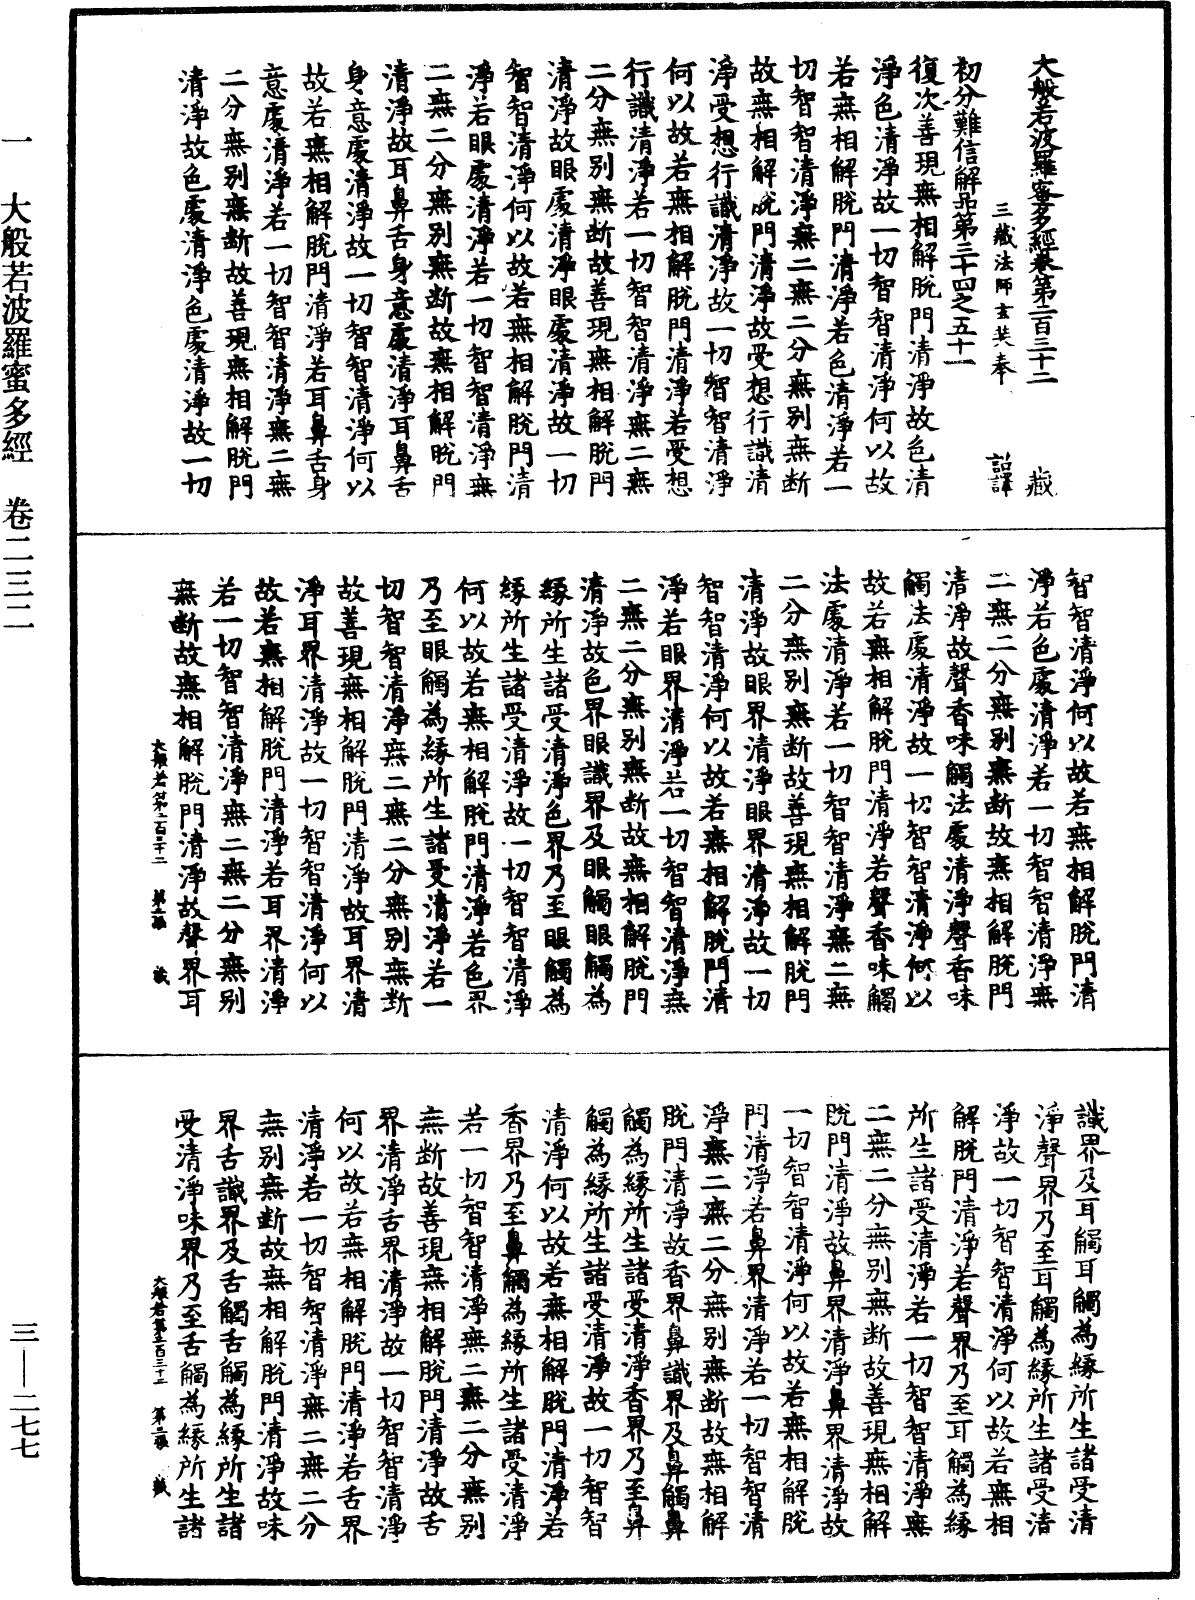 大般若波羅蜜多經卷第二百三十二 嶽
三藏法師玄奘奉 詔譯
初分難信解品第三十四之五十一
復次善現無相解脫門清淨故色清
淨色清淨故一切智智清淨何以故
若無相解脫門清淨若色清淨若一
切智智清淨無二無二分無別無斷
故無相解脫門清淨故受想行識清
淨受想行識清淨故一切智智清淨
何以故若無相解脫門清淨若受想
行識清淨若一切智智清淨無二無
二分無別無斷故善現無相解脫門
清淨故眼處清淨眼處清淨故一切
智智清淨何以故若無相解脫門清
淨若眼處清淨若一切智智清淨無
二無二分無別無斷故無相解脫門
清淨故耳鼻舌身意處清淨耳鼻舌
身意處清淨故一切智智清淨何以
故若無相解脫門清淨若耳鼻舌身
意處清淨若一切智智清淨無二無
二分無別無斷故善現無相解脫門
清淨故色處清淨色處清淨故一切
智智清淨何以故若無相解脫門清
淨若色處清淨若一切智智清淨無
二無二分無別無斷故無相解脫門
清淨故聲香味觸法處清淨聲香味
觸法處清淨故一切智智清淨何以
故若無相解脫門清淨若聲香味觸
法處清淨若一切智智清淨無二無
二分無別無斷故善現無相解脫門
清淨故眼界清淨眼界清淨故一切
智智清淨何以故若無相解脫門清
淨若眼界清淨若一切智智清淨無
二無二分無別無斷故無相解脫門
清淨故色界眼識界及眼觸眼觸為
緣所生諸受清淨色界乃至眼觸為
緣所生諸受清淨故一切智智清淨
何以故若無相解脫門清淨若色界
乃至眼觸為緣所生諸受清淨若一
切智智清淨無二無二分無別無斷
故善現無相解脫門清淨故耳界清
淨耳界清淨故一切智智清淨何以
故若無相解脫門清淨若耳界清淨
若一切智智清淨無二無二分無別
無斷故無相解脫門清淨故聲界耳
大般若第二百三十二 第二張
識界及耳觸耳觸為緣所生諸受清
淨聲界乃至耳觸為緣所生諸受清
淨故一切智智清淨何以故若無相
解脫門清淨若聲界乃至耳觸為緣
所生諸受清淨若一切智智清淨無
二無二分無別無斷故善現無相解
脫門清淨故鼻界清淨鼻界清淨故
一切智智清淨何以故若無相解脫
門清淨若鼻界清淨若一切智智清
淨無二無二分無別無斷故無相解
脫門清淨故香界鼻識界及鼻觸鼻
觸為緣所生諸受清淨香界乃至鼻
觸為緣所生諸受清淨故一切智智
清淨何以故若無相解脫門清淨若
香界乃至鼻觸為緣所生諸受清淨
若一切智智清淨無二無二分無別
無斷故善現無相解脫門清淨故舌
界清淨舌界清淨故一切智智清淨
何以故若無相解脫門清淨若舌界
清淨若一切智智清淨無二無二分
無別無斷故無相解脫門清淨故味
界舌識界及舌觸舌觸為緣所生諸
受清淨味界乃至舌觸為緣所生諸
大般若第二百三十二 第三張
一 大般若波羅蜜多經 卷二三二
三—二七七